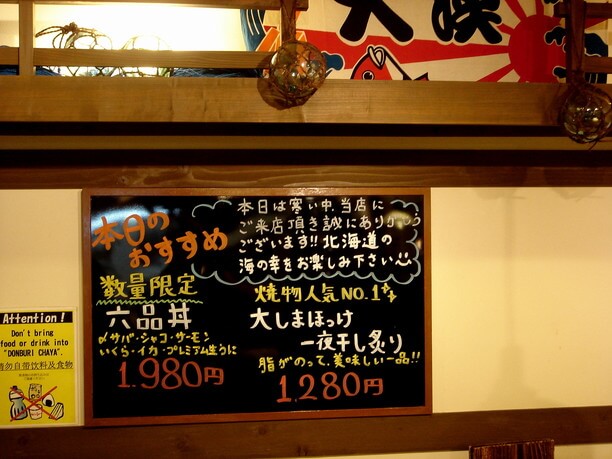 大漁
本日の
おすすめ
本日は寒い中、当店に
ご来店頂き誠にありがとう
ございます!!北海道の
海の幸をお楽しみ下さい
数量限定
六品丼
〆サバ・シャコ・サーモン
いくら・イカ・プレミアム生うに
1.980円
焼物人気NO.1
大しまほっけ
一夜干し炙り
脂がのって、美味しい一品!!
1,280円
Attention!
Don't bring
food or drink into
"DONBURI CHAYA".
请勿自带饮料及食物